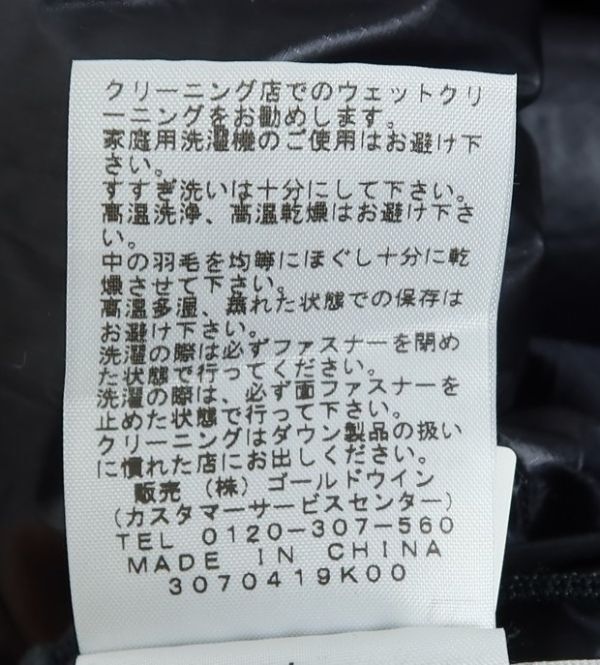 クリーニング店でのウェットクリ
ーニングをお勧めします。
家庭用洗濯機のご使用はお避け下
さい。
すすぎ洗いは十分にして下さい。
高温洗浄、高温乾燥はお避け下さ
い。
中の羽毛を均等にほぐし十分に乾
燥させて下さい。
高温多湿、蒸れた状態での保存は
お避け下さい。
洗濯の際は必ずファスナーを閉め
た状態で行ってください。
洗濯の際は、必ず面ファスナーを
止めた状態で行って下さい。
クリーニングはダウン製品の扱い
に慣れた店にお出しください。
販売 (株) ゴールドウイン
(カスタマーサービスセンター)
TEL 0120-307-560
MADE IN CHINA
3070419K00